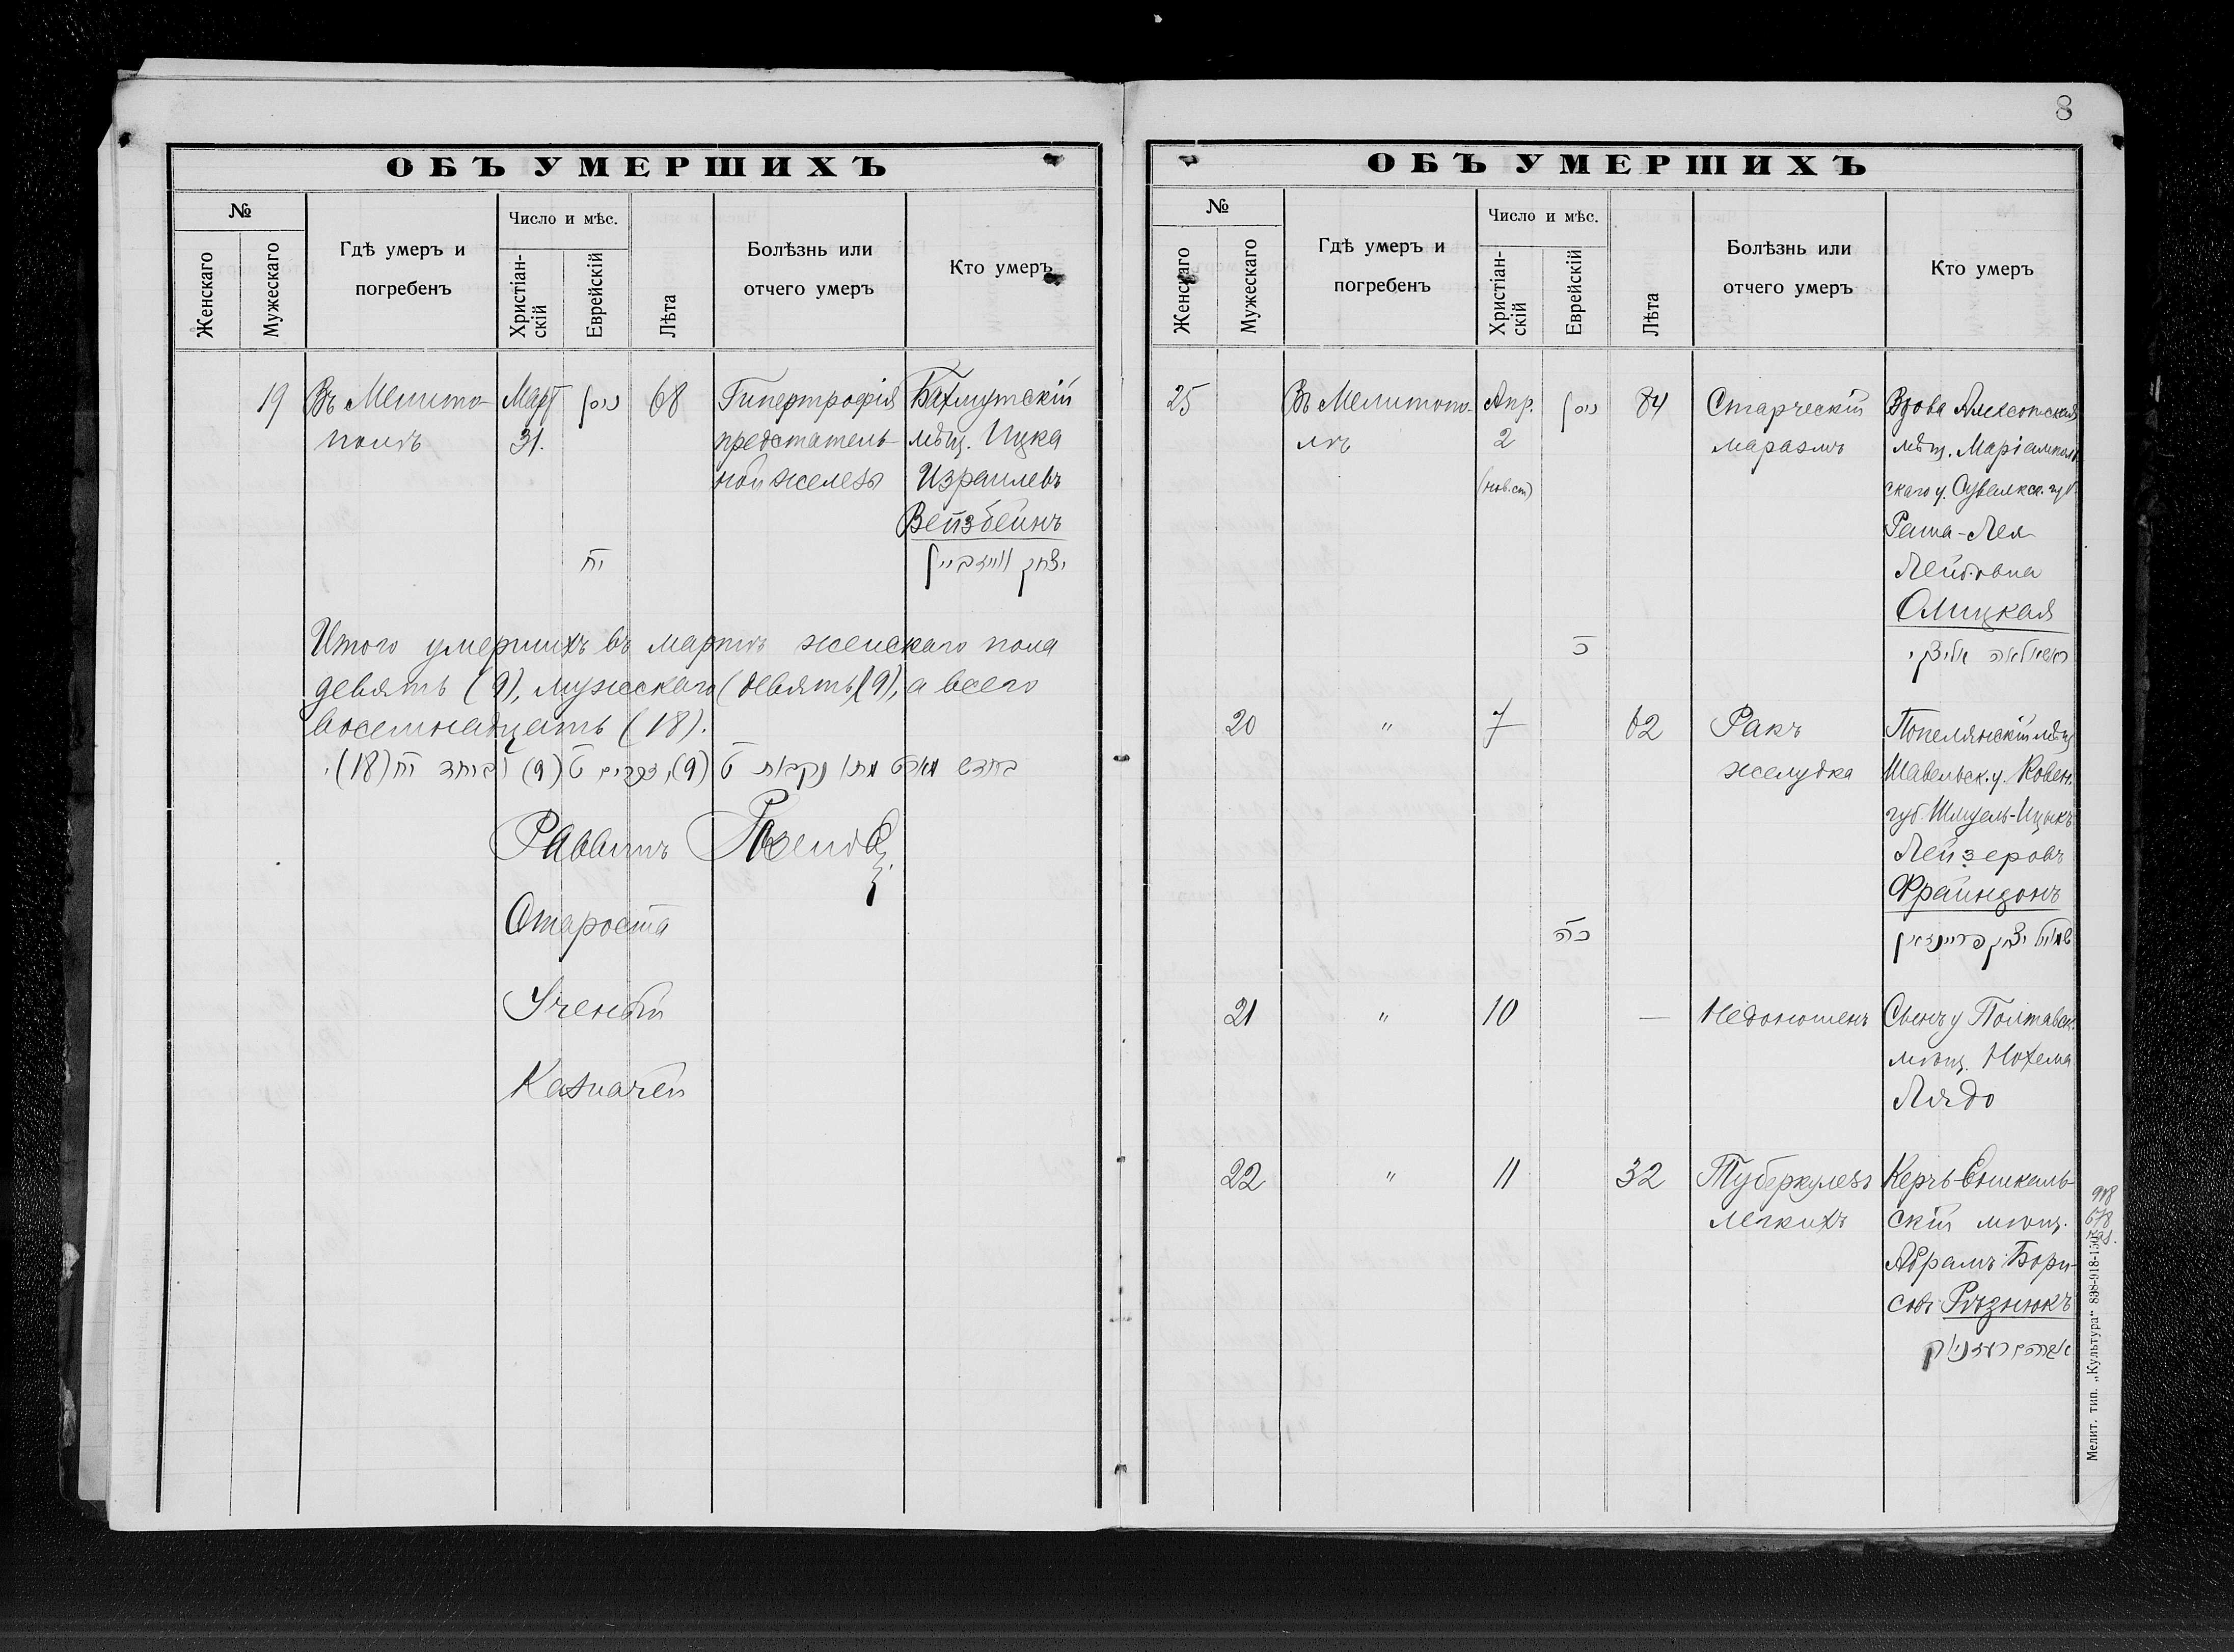 ОБЪ УМЕРШИХЪ
№
Женскаго
Мужескаго
Гдѣ умеръ и
погребенъ
Число и мѣс.
Христіан-
скій
Еврейскій
Лѣта
Болѣзнь или
отчего умеръ
Кто умеръ
19
Въ Мелито-
полѣ
Март
31.
ניסן
יח
68
Гипертрофія
предстатель-
ной железы
Бахмутскій
мѣщ. Ицка
Израилевъ
Вейзбейнъ
יצחק ווייזביין
Итого умершихъ въ мартѣ женскаго пола
девять (9), мужескаго (девять)(9), а всего
восемнадцать (18).
בחדש מארט מתו נקבות ט (9), זכרים ט (9) ביחד יח (18).
Раввинъ
Староста
Ученый
Казначей
8
ОБЪ УМЕРШИХЪ
№
Женскаго
Мужескаго
Гдѣ умеръ и
погребенъ
Число и мѣс.
Христіан-
скій
Еврейскій
Лѣта
Болѣзнь или
отчего умеръ
Кто умеръ
25
Въ Мелитопо-
лѣ
Апр.
2
(нов.ст)
ניסן
כ
84
Старческій
маразмъ
Вдова
мѣщ. Маріампол
скаго у. Сувалкск. губ.
Раша-Лея
Лейбовна
Олицкая
ראשא לאה אליצקי
20
"
7
כה
62
Ракъ
желудка
Попелянскій мѣщ
Шавельск. у. Ковен.
губ. Шмуель-Ицыкъ
Лейзеровъ
Фрайндонъ
שמואל יצחק פריינדאן
21
"
10
—
Недоношенъ
Сынъ у Полтавск.
мѣщ. Нохема
Лядо
22
"
11
32
Туберкулезъ
легкихъ
Керчь-Еникаль-
скій мѣщ.
Абрамъ Бори-
совъ Рѣзнюкъ
אברהם רעזניוק
Мелит. тип. „Культура“ 838-918-150